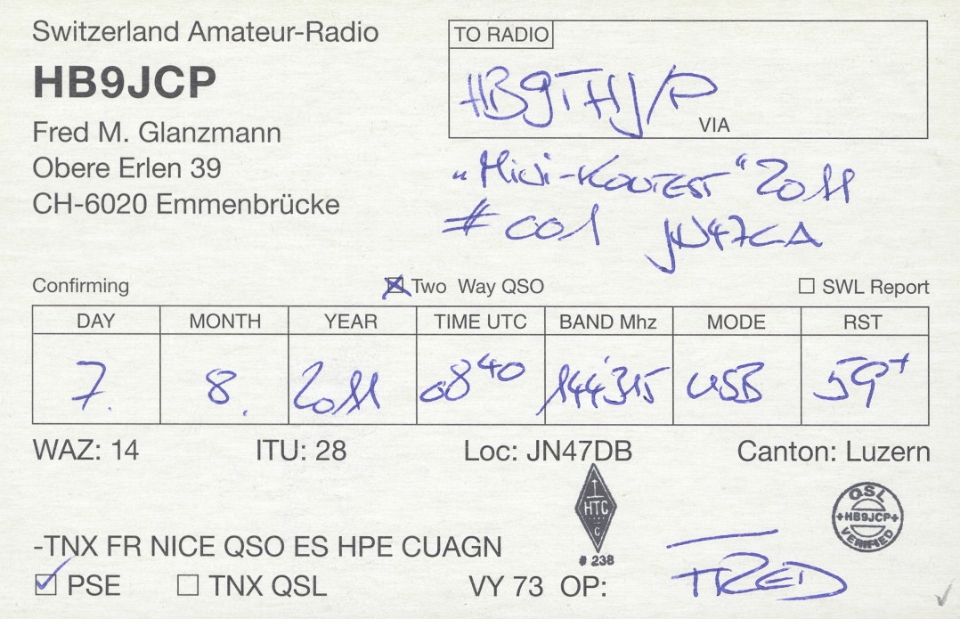 Switzerland Amateur-Radio
HB9JCP
Fred M. Glanzmann
Obere Erlen 39
CH-6020 Emmenbrücke
TO RADIO
HB9THJ/P
VIA
„Mini-Kontest“ 2011
# 001 JN47CA
Confirming ☒ Two Way QSO ☐ SWL Report
DAY MONTH YEAR TIME UTC BAND Mhz MODE RST
7. 8. 2011 08 40 144'315 USB 59+
WAZ: 14 ITU: 28 Loc: JN47DB Canton: Luzern
HTC
C
# 238
QSL
+HB9JCP+
VERIFIED
-TNX FR NICE QSO ES HPE CUAGN
☑ PSE ☐ TNX QSL VY 73 OP: FRED